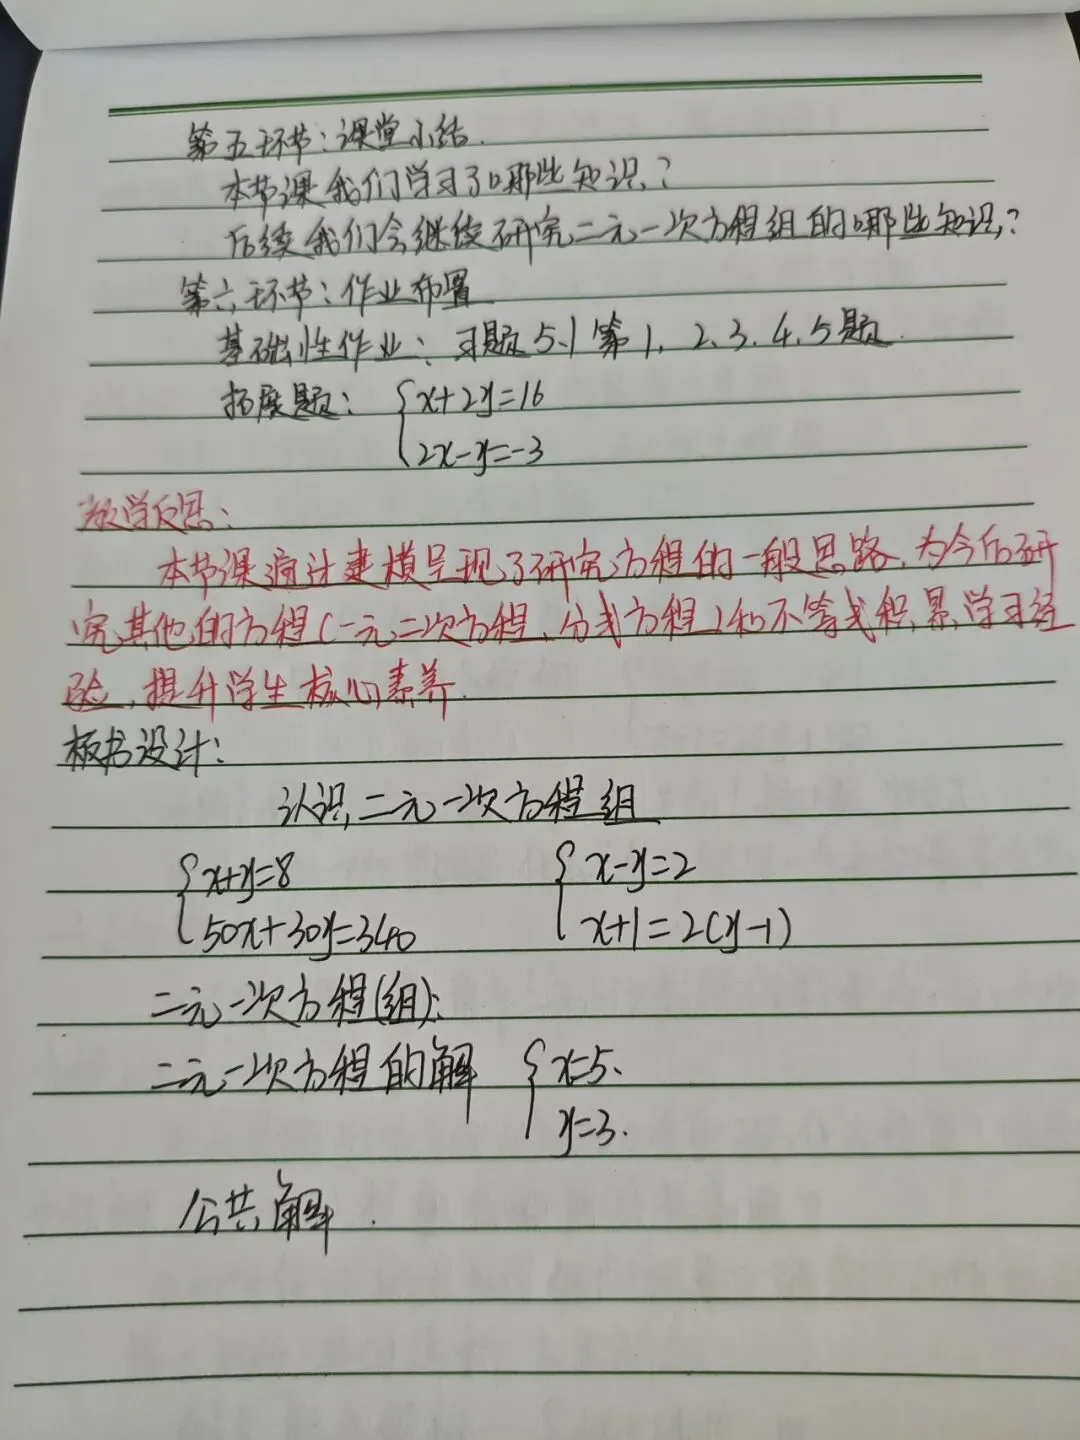 第五环节：课堂小结.
本节课我们学习了哪些知识？
后续我们会继续研究二元一次方程组的哪些知识？
第六环节：作业布置
基础性作业：习题5.1第1、2、3、4、5题.
拓展题：{x+2y=16
2x-y=-3
教学反思：
本节课通过建模呈现了研究方程的一般思路，为今后研
究其他的方程(一元二次方程、分式方程)和不等式积累学习经
验，提升学生核心素养.
板书设计：
认识二元一次方程组
{x+y=8 {x-y=2
50x+30y=340 x+1=2(y-1)
二元一次方程(组)：
二元一次方程的解 {x=5.
y=3.
公共解.